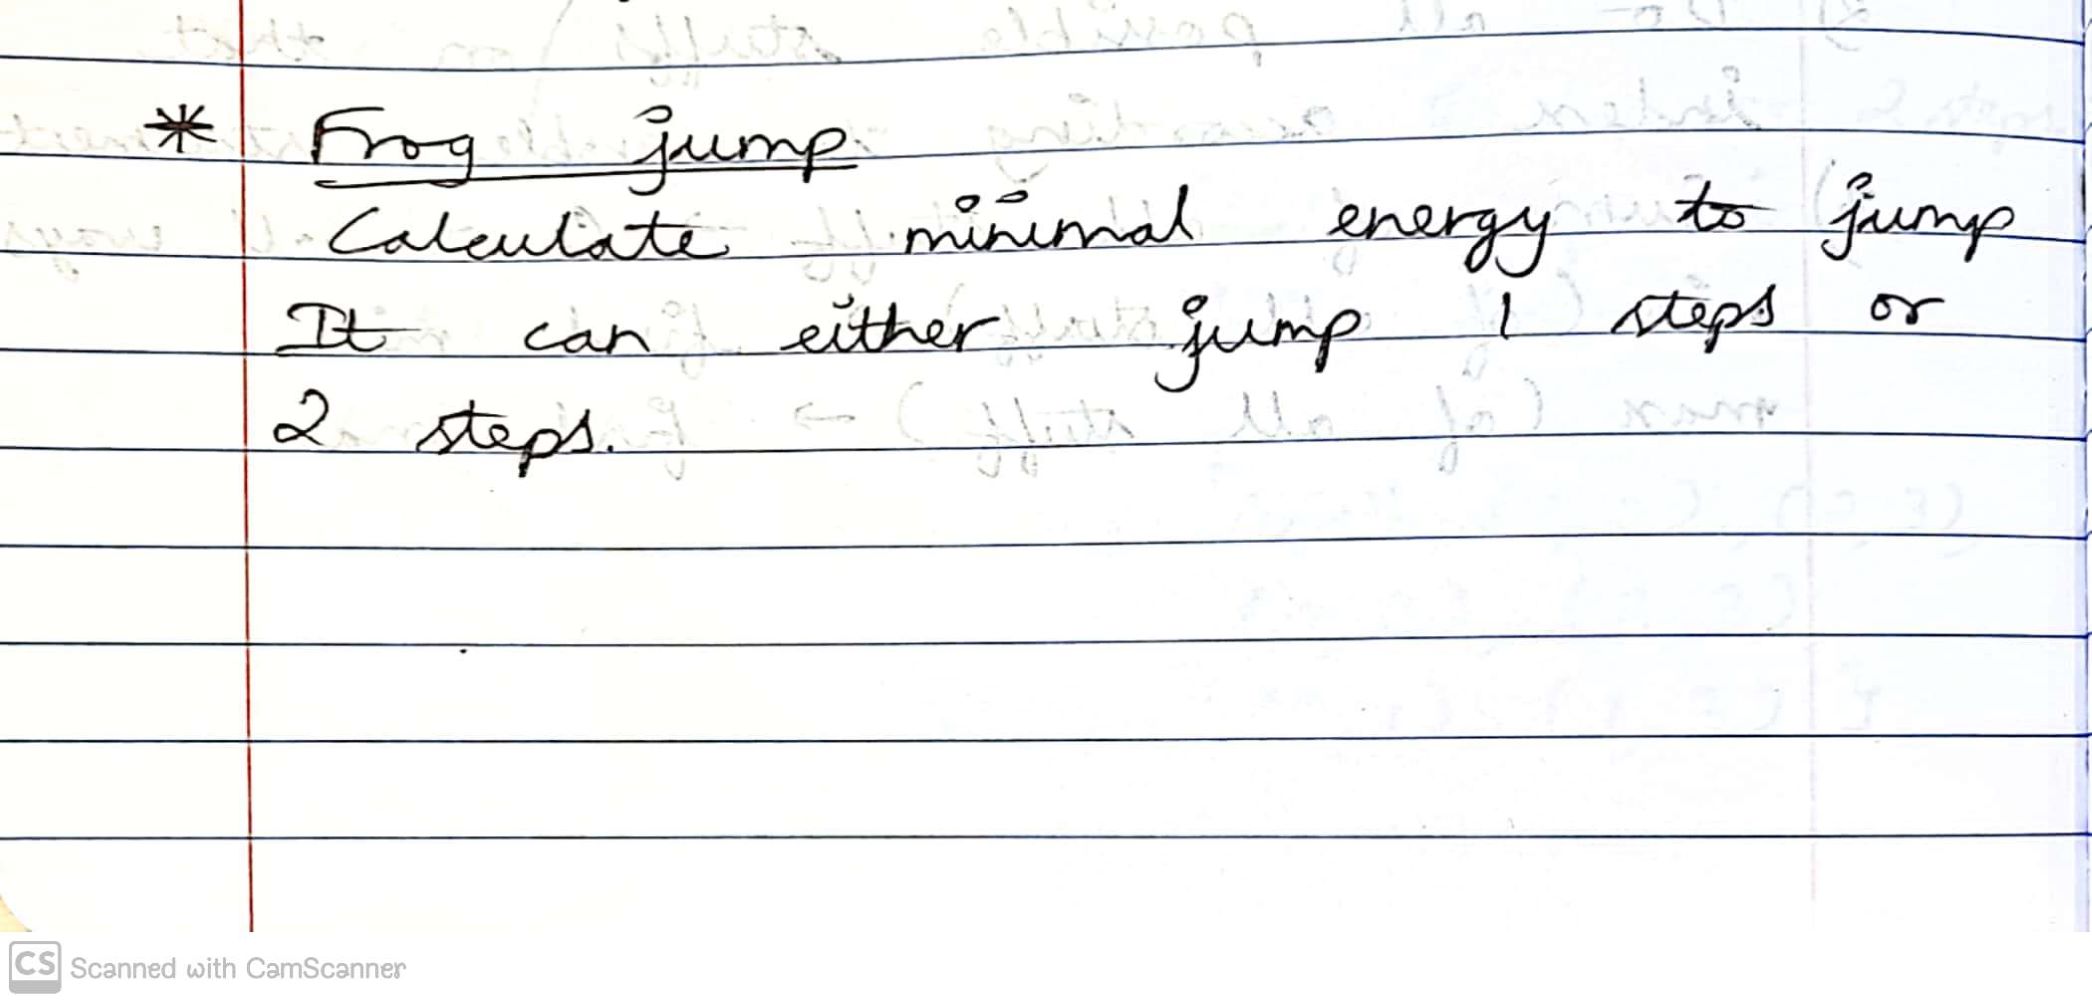 * Frog jump.
Calculate minimal energy to jump
It can either jump 1 steps or
2 steps.
CS Scanned with CamScanner